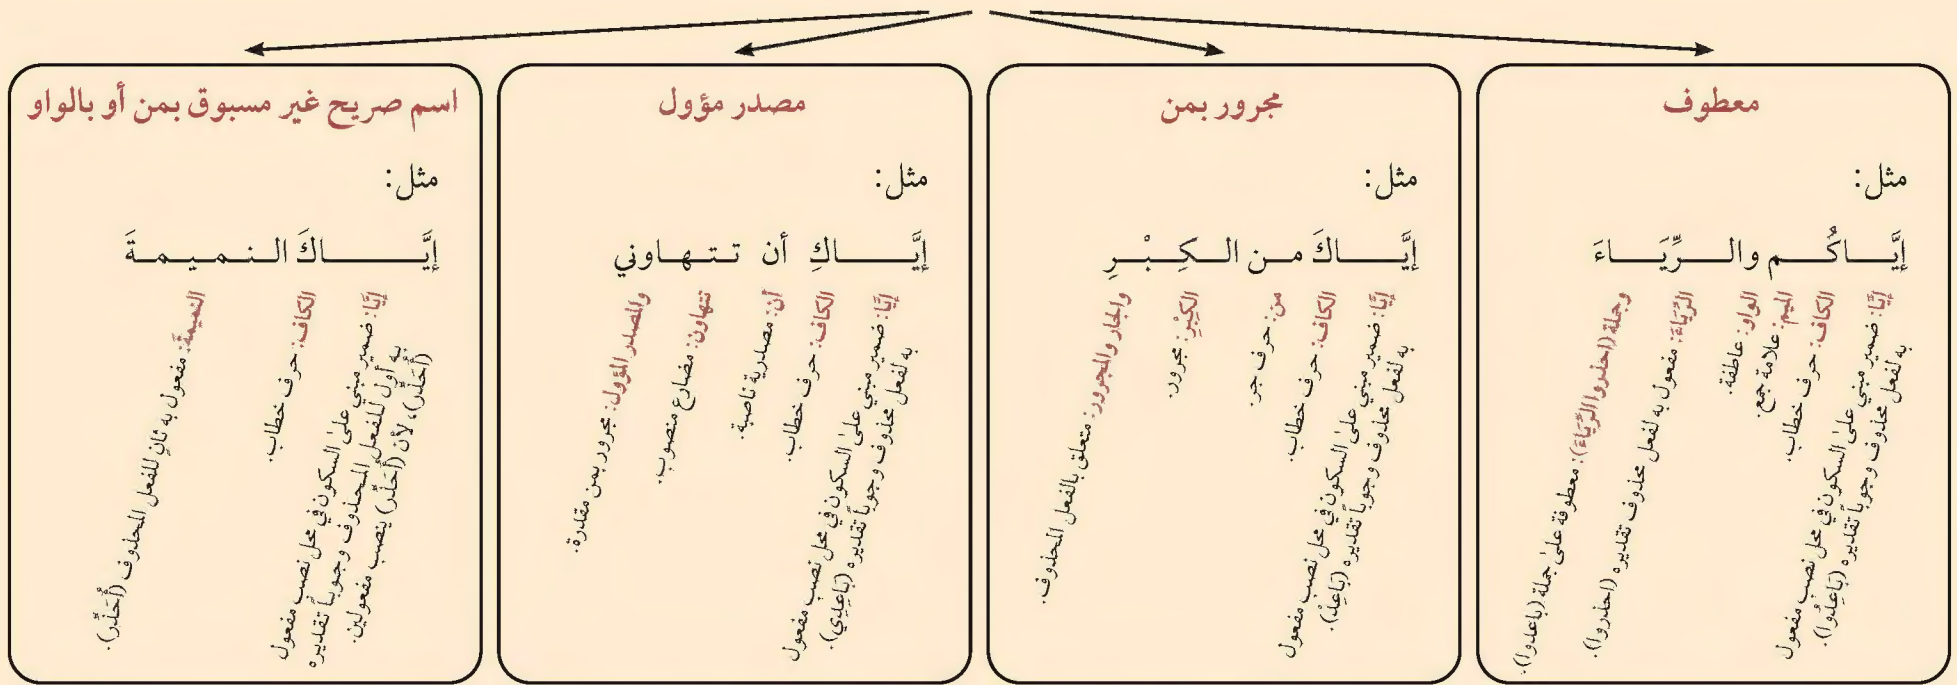 معطوف
مثل:
إيَّـــاكُـــم والـــرِّيَـــاءَ
إيَّا: ضمير مبني على السكون في محل نصب مفعول
به لفعل محذوف وجوباً تقديره (بَاعِدُوا).
الكاف: حرف خطاب.
الميم: علامة جمع.
الواو: عاطفة.
الرِّيَاءَ: مفعول به لفعل محذوف تقديره (احذروا).
وجملة (احذروا الرِّيَاءَ): معطوفة على جملة (باعدوا).
مجرور بمن
مثل:
إيَّـــاكَ مـن الـكِـبْـرِ
إيَّا: ضمير مبني على السكون في محل نصب مفعول
به لفعل محذوف وجوباً تقديره (بَاعِدْ).
الكاف: حرف خطاب.
من: حرف جر.
الكِبْرِ: مجرور.
والجار والمجرور: متعلق بالفعل المحذوف.
مصدر مؤول
مثل:
إيَّـــاكِ أن تـتـهـاوني
إيَّا: ضمير مبني على السكون في محل نصب مفعول
به لفعل محذوف وجوباً تقديره (بَاعِدِي).
الكاف: حرف خطاب.
أن: مصدرية ناصبة.
تتهاون: مضارع منصوب.
والمصدر المؤول: مجرور بمن مقدرة.
اسم صريح غير مسبوق بمن أو بالواو
مثل:
إيَّـــاكَ الـنـمـيـمـةَ
إيَّا: ضمير مبني على السكون في محل نصب مفعول
به أول للفعل المحذوف وجوباً تقديره
(أُحَذِّر)، لأن (أُحَذِّر) ينصب مفعولين.
الكاف: حرف خطاب.
النميمةَ: مفعول به ثانٍ للفعل المحذوف (أُحَذِّر).